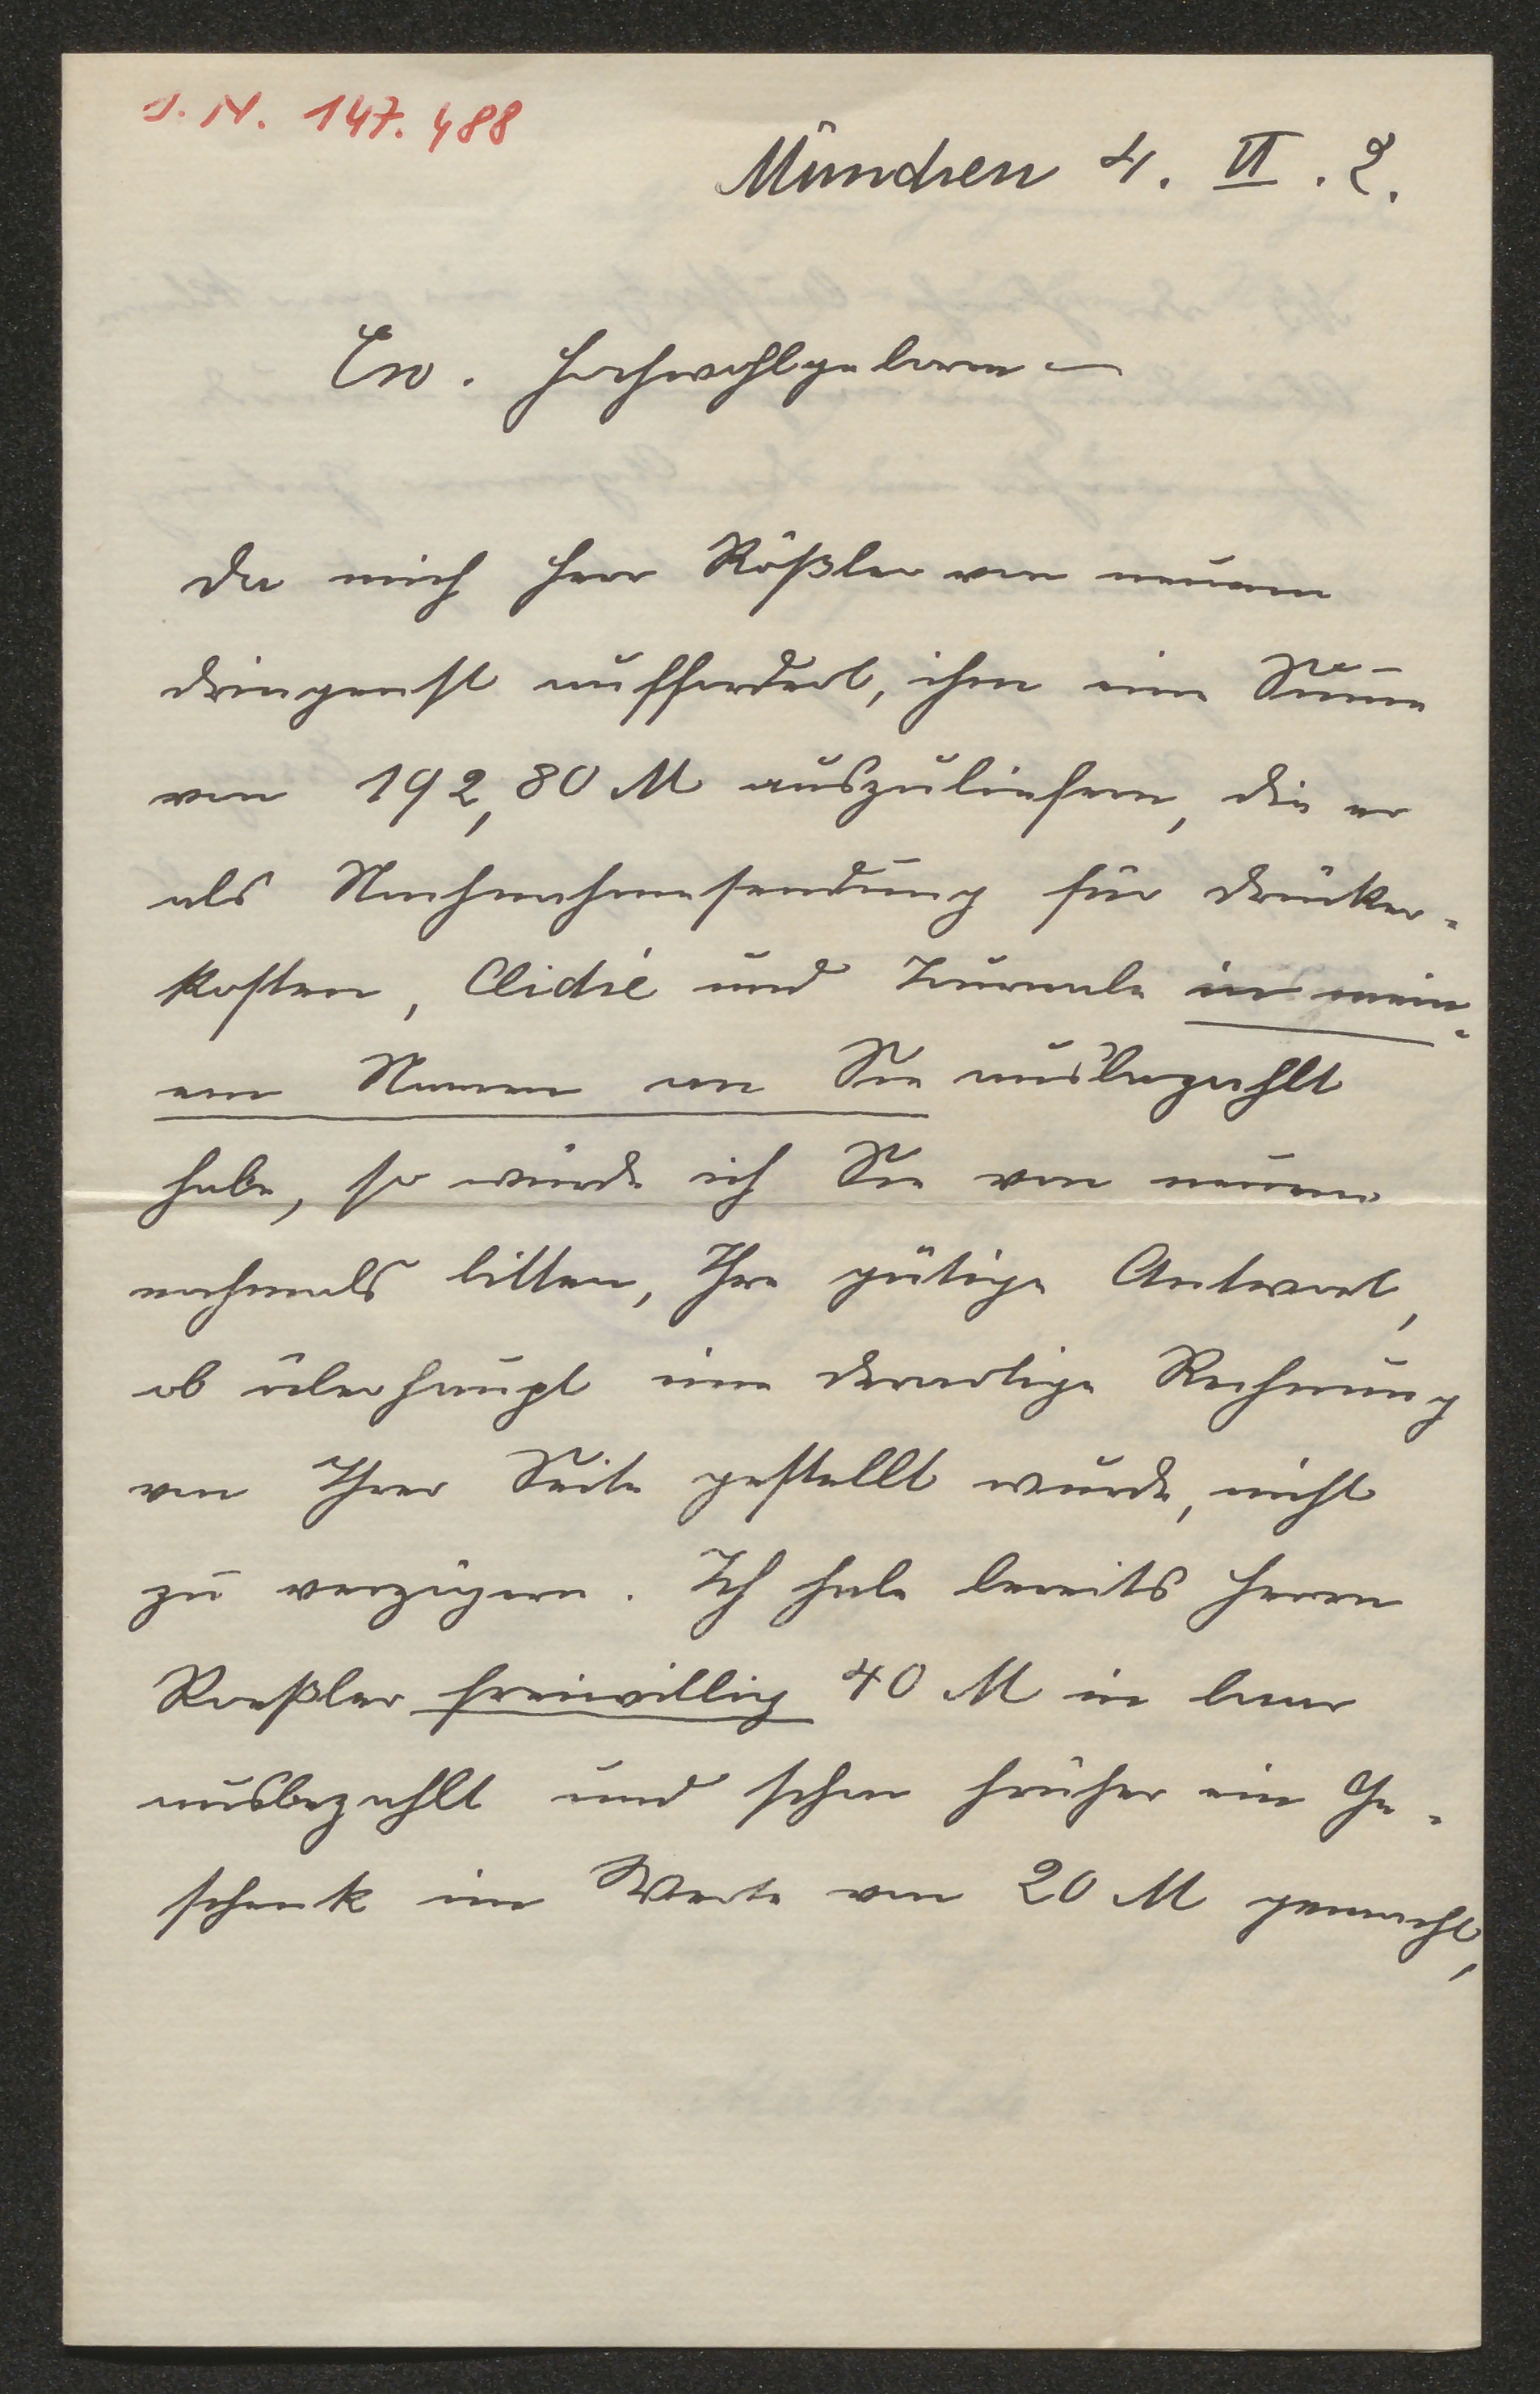 J. N. 147.488
München 4. VI. 2.
Ew. Hochwohlgeboren
Da mich Herr Rößler von neuem
dringenst auffordert, ihm eine Sum̅e
von 192,80 M auszuliefern, die er
als Nachnahmesendung für Drucker-
kosten, Cliché und Journale in mein-
em Namen an Sie ausbezahlt
habe, so würde ich Sie von neuem
nochmals bitten, Ihre gütige Antwort,
ob überhaupt eine derartige Rechnung
von Ihrer Seite gestellt wurde, nicht
zu verzögern. Ich habe bereits Herrn
Roeßler freiwillig 40 M in baar
ausbezahlt und schon früher ein Ge-
schenk im Werte von 20 M gemacht,